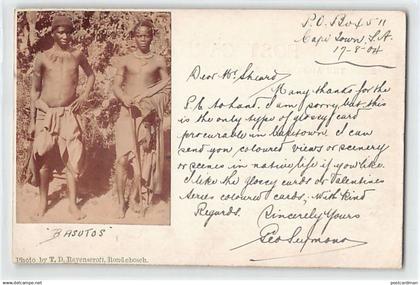 P.O. Box 511
Cape Town, S.A.
17-8-04
Dear Mr Sheard
Many thanks for the
P.C. to hand. I am sorry but this
is the only type of glossy card
procurable in Capetown. I can
send you, coloured views or scenery
or scenes in native life if you like.
I like the glossy cards or Valentines
series coloured cards, with kind
Regards. Sincerely Yours
Geo Seymour
"BASUTOS"
Photo by T. D. Ravenscroft, Rondebosch.